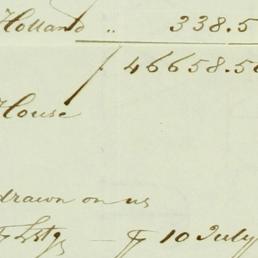 Holland " 338.5
f 46658.50
House
drawn on us
10 July